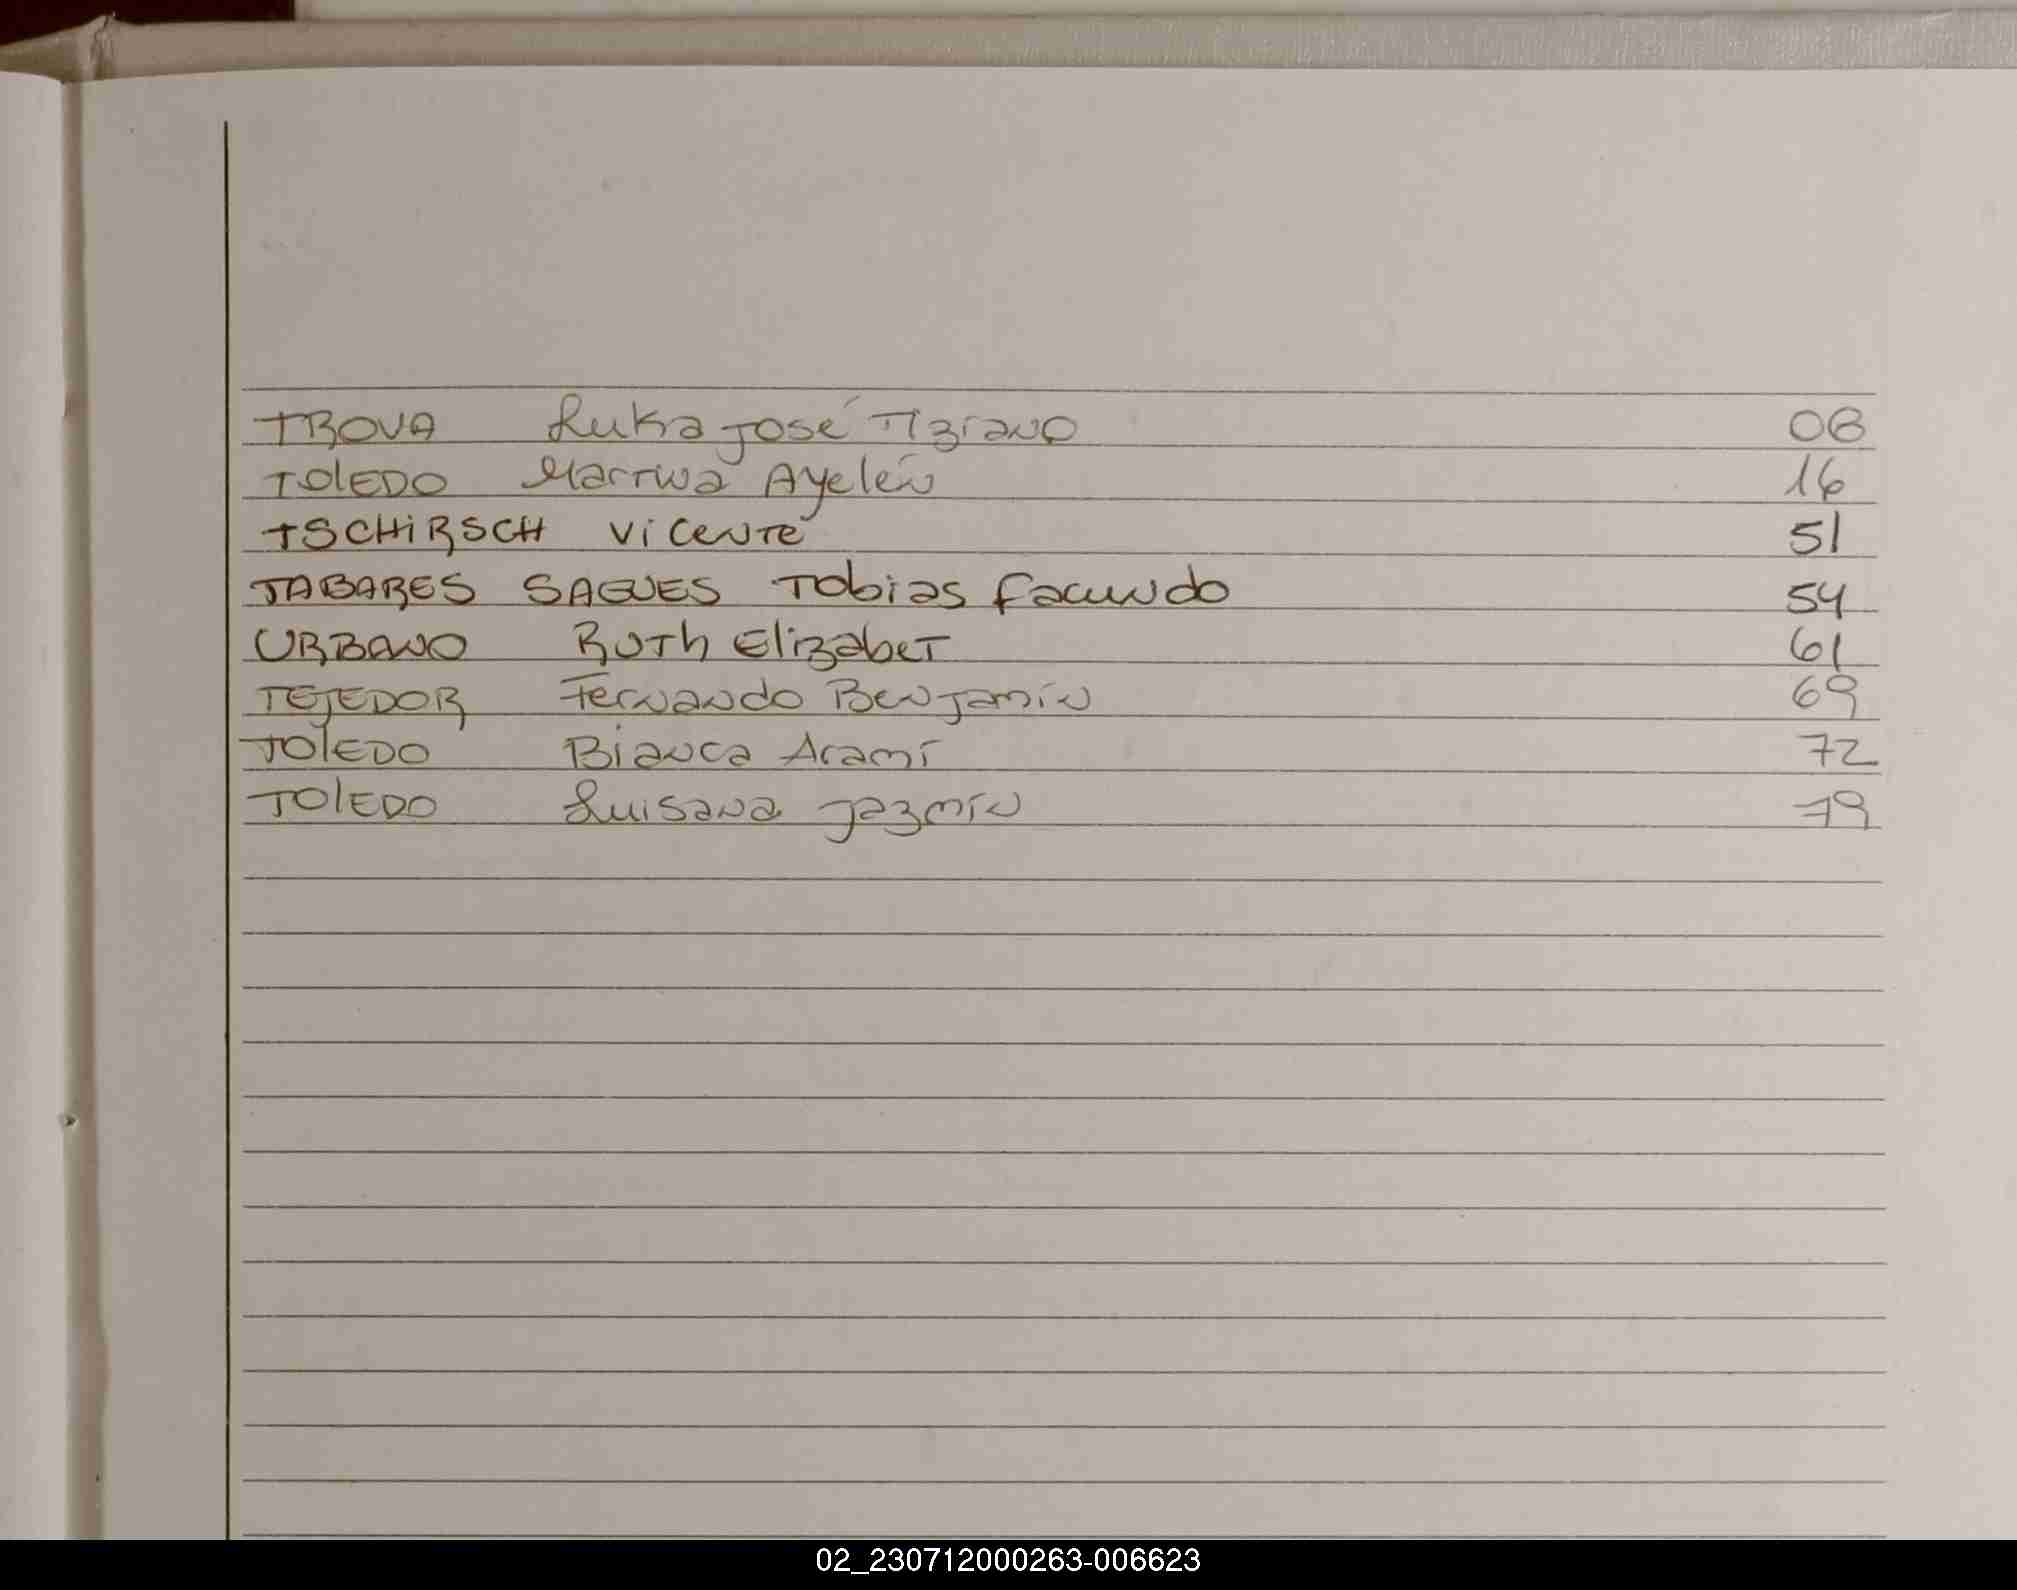 TROVA Luka José Tiziano 08
TOlEDO Martina Ayelén 16
TSCHiRSCH Vicente 51
TABARES SAGUES Tobias Facundo 54
URBANO Ruth Elizabet 61
TEJEDOR Fernando Benjamín 69
TOlEDO Bianca Aramí 72
TOlEDO Luisana Jazmín 79
02_230712000263-006623